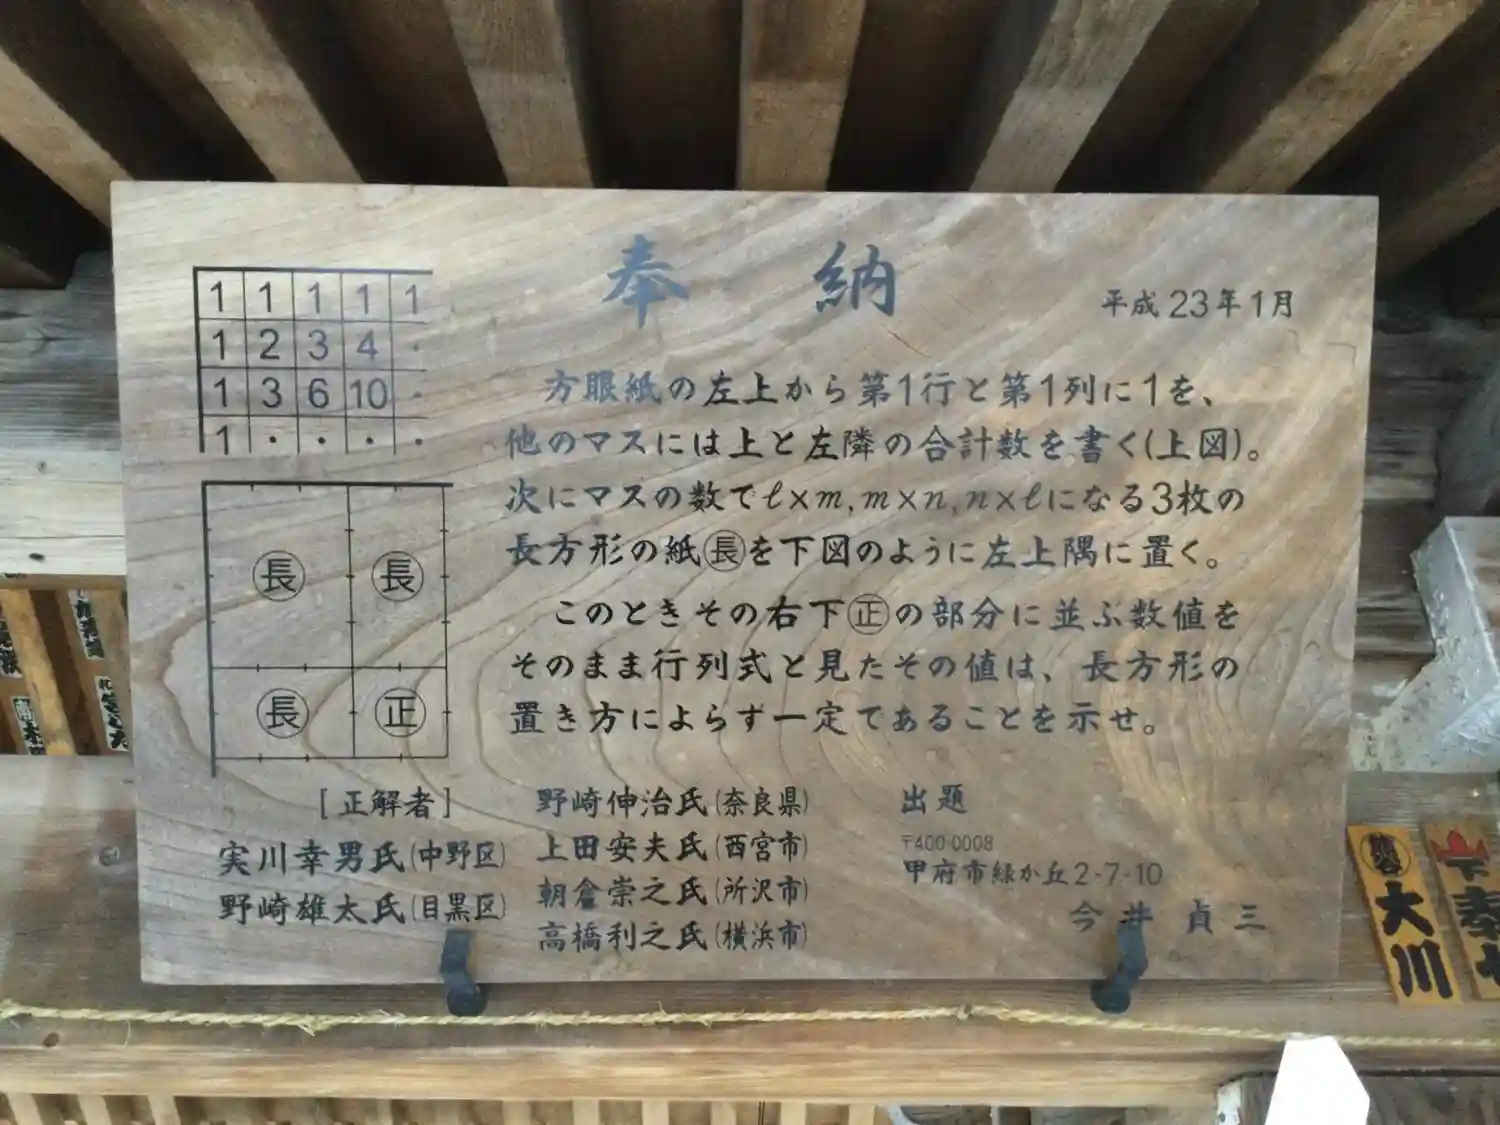 奉納
平成23年1月
1 1 1 1 1
1 2 3 4 ・
1 3 6 10 ・
1 ・ ・ ・ ・
方眼紙の左上から第1行と第1列に1を、
他のマスには上と左隣の合計数を書く(上図)。
次にマスの数でℓ×m,m×n,n×ℓになる3枚の
長方形の紙㊤を下図のように左上隅に置く。
このときその右下㊣の部分に並ぶ数値を
そのまま行列式と見たその値は、長方形の
置き方によらず一定てあることを示せ。
長 長
長 正
[正解者]
実川幸男氏(中野区)
野崎雄太氏(目黒区)
野崎伸治氏(奈良県)
上田安夫氏(西宮市)
朝倉崇之氏(所沢市)
高橋利之氏(横浜市)
出題
〒400-0008
甲府市緑か丘2-7-10
今井貞三
大川